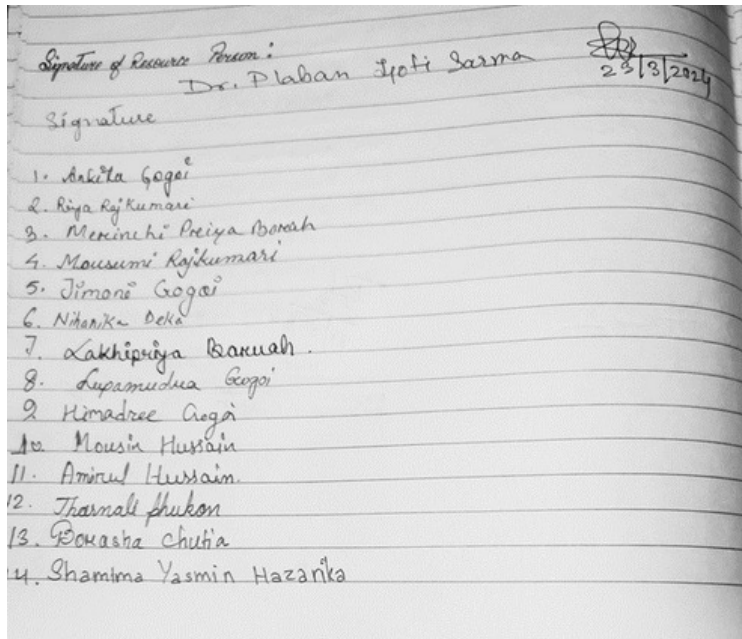 Signature of Resource Person :
Dr. Plaban Jyoti Sarma
23/3/2024
Signature
1. Ankita Gogoi
2. Riya Rajkumari
3. Merinchi Preiya Borah
4. Mousumi Rajkumari
5. Jimoni Gogoi
6. Niharika Deka
7. Lakhipriya Baruah.
8. Lupamudra Gogoi
9 Himadree Gogoi
10 Mousin Hussain
11. Aminul Hussain.
12. Phukon
13. Borasha Chutia
14. Shamima Yasmin Hazarika